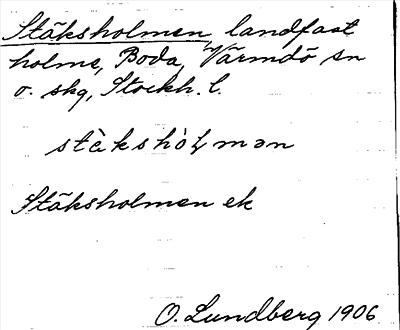 Stäksholmen, landfast
holme, Boda, Värmdö sn
o. skg, Stockh. l.
stä̀kshòɬmən
Stäksholmen ek
O. Lundberg 1906